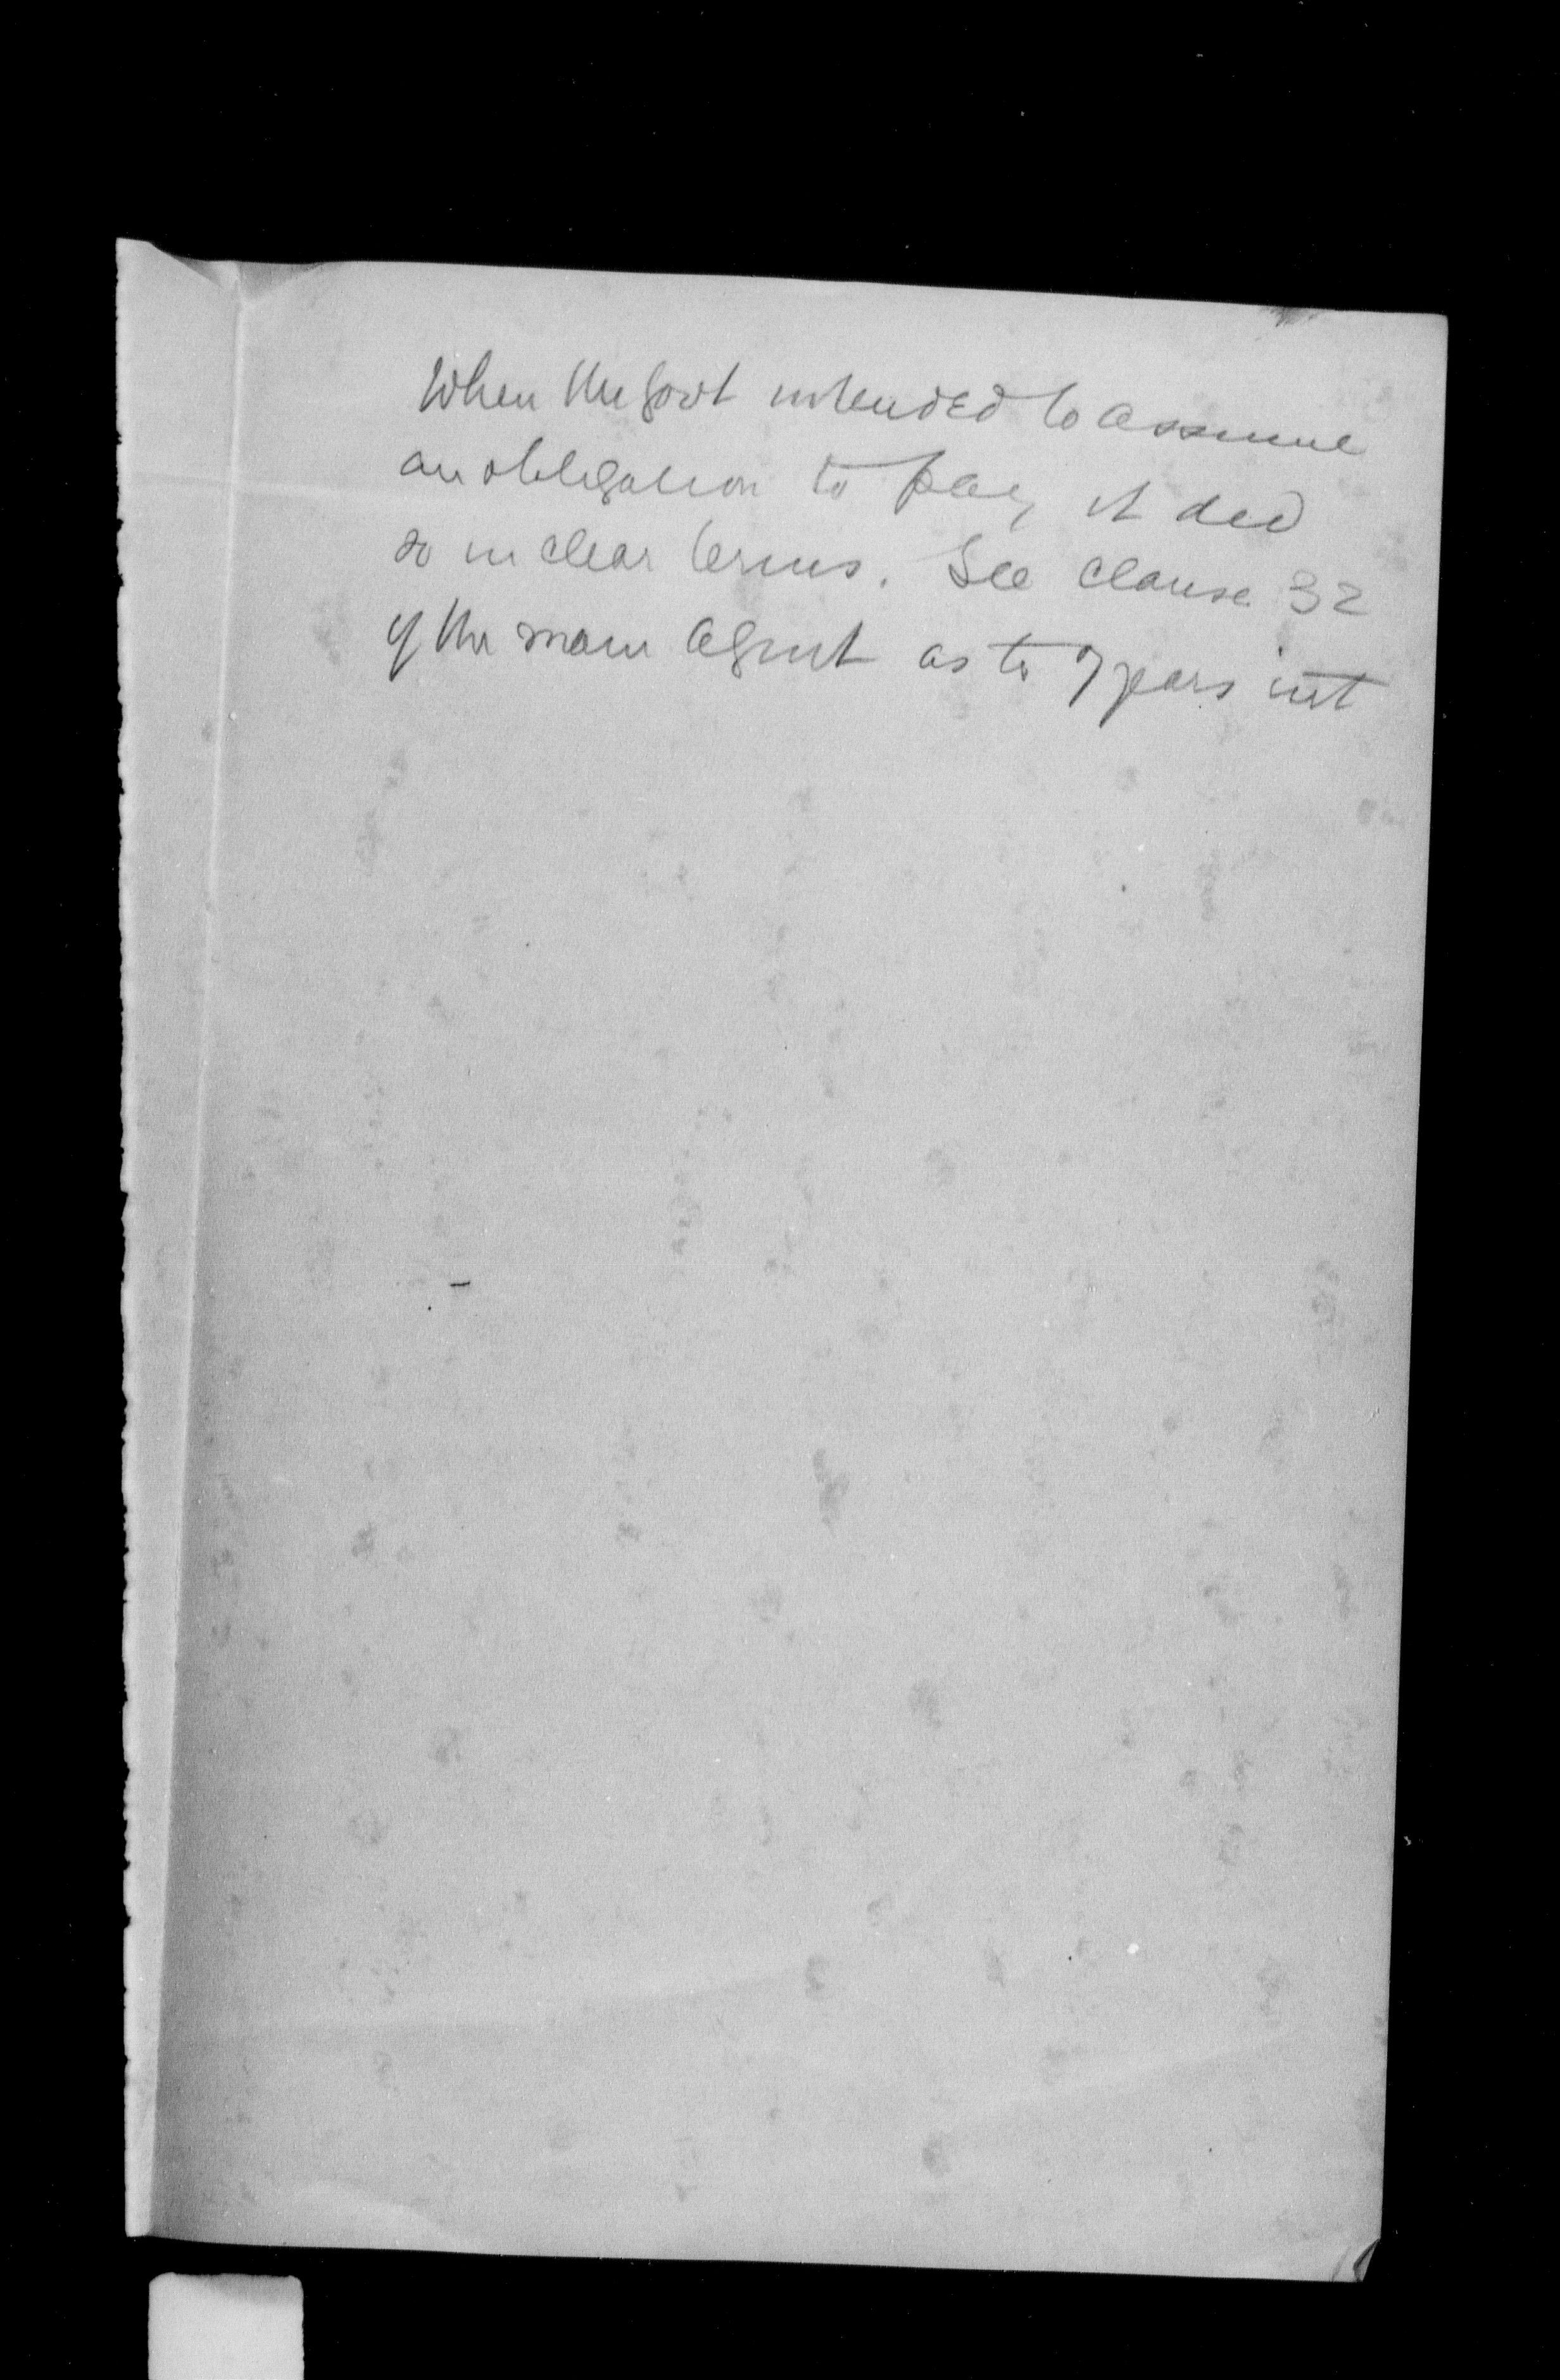 When the Govt intended to assume
an obligation to pay, it did
so in clear terms. See clause 32
of the main Agmt as to 7 years int